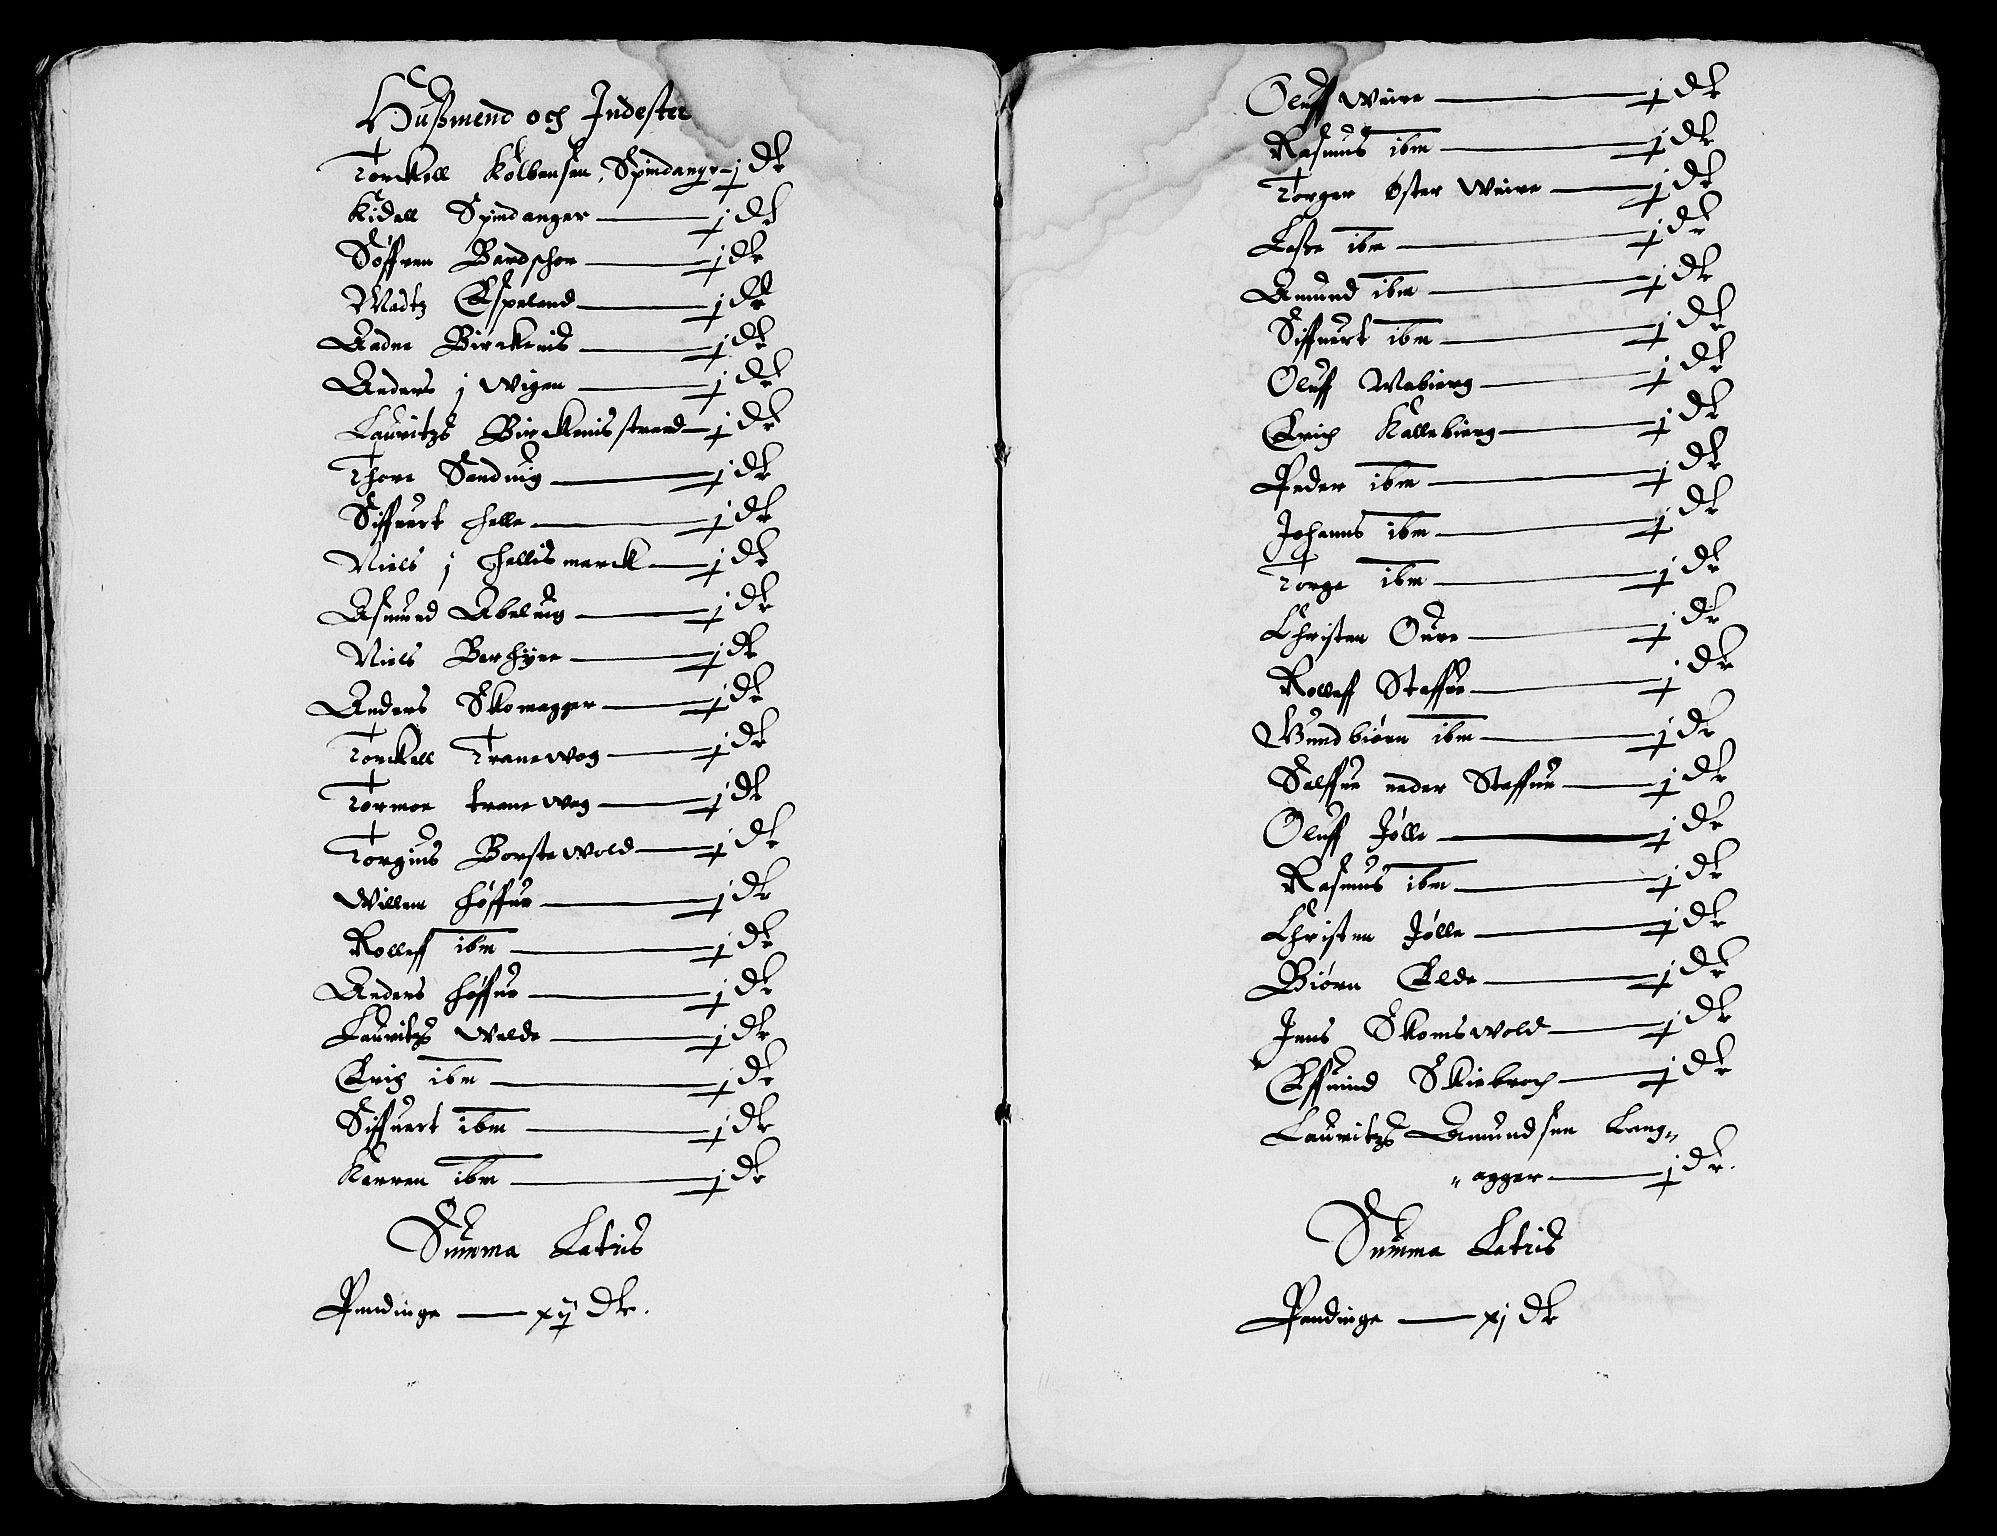 Hußmend och Indester
Torckell Kolbensen, Spindanger j dr
Kidell Spindanger j dr
Søffren Bardschor j dr
Madtz Espeland j dr
Aadne Birckenis j dr
Anders j Wigen j dr
Lauritzs Birckenisstrand j dr
Thore Sanduig j dr
Siffuert Helle j dr
Niels j Hellismarck j dr
Asmund Abeluig j dr
Niels j dr
Anders Skomagger j dr
Torckell Tranewog j dr
Tormoe tranewog j dr
Torgius Borstewold j dr
Willem Høffue j dr
Rolleff ibm j dr
Anders Høffue j dr
Lauritzs Welde j dr
Erich ibm j dr
Siffuert ibm j dr
Karren ibm j dr
Summa Lateris
Pendinge xij dr.
Oluff Weire j dr
Rasmus ibm j dr
Torger Øster Weire j dr
Lasse ibm j dr
Amund ibm j dr
Siffuert ibm j dr
Oluff Wabierg j dr
Erich Kallebierg j dr
Peder ibm j dr
Johanns ibm j dr
Torge ibm j dr
Christen Oure j dr
Rolleff Staffue j dr
Gundbiørn ibm j dr
Salffue neder Staffue j dr
Oluff Jølle j dr
Rasmus ibm j dr
Christen Jølle j dr
Biørn Elde j dr
Jens Skomswold j dr
Effuind Skiebroch j dr
Lauritzs Amundsen Lang„
„agger j dr.
Summa Lateris
Pendinge xj dr